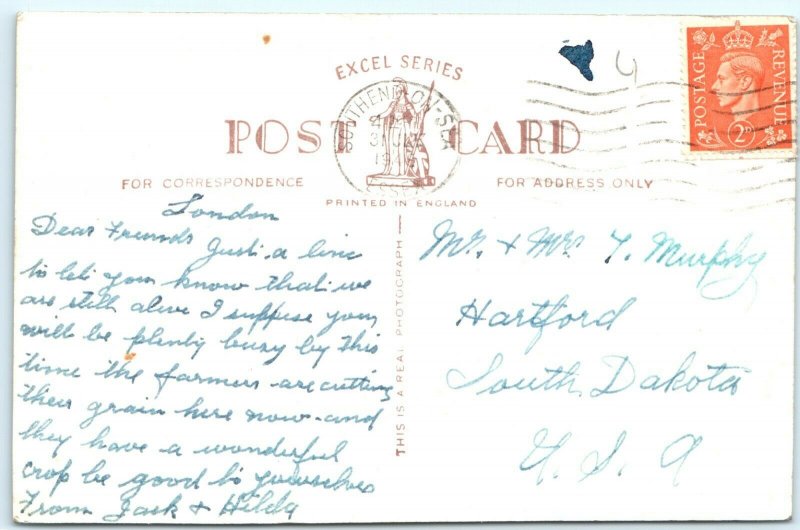 EXCEL SERIES
POST CARD
FOR CORRESPONDENCE
FOR ADDRESS ONLY
PRINTED IN ENGLAND
THIS IS A REAL PHOTOGRAPH
SOUTHEND-ON-SEA
ESSEX
POSTAGE REVENUE
2D
4
London
Dear Freunds Just a line
to let you know that we
are still alive I suppose your
will be plenty buzy by this
time the farmers are cutting
their grain here now and
they have a wonderful
crop be good to yourselves
From Jack & Hilda
Mr. & Mrs T. Murphy
Hartford
South Dakota
U. S. A